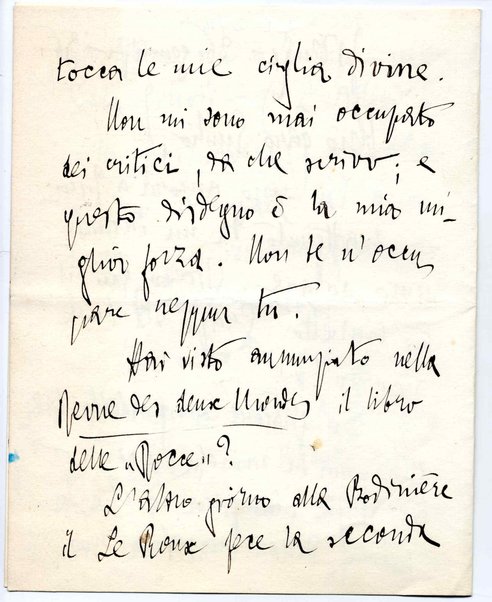 tocca le mie ciglia divine.
Non mi sono mai occupato
dei critici, da che scrivo; e
questo disdegno è la mia mi-
glior forza. Non te n'occu
pare neppur tu.
Hai visto annunziato nella
Revue des deux Mondes il libro
delle „Rocce"?
L'altro giorno alla Bodinière
il Le Roux fece la seconda